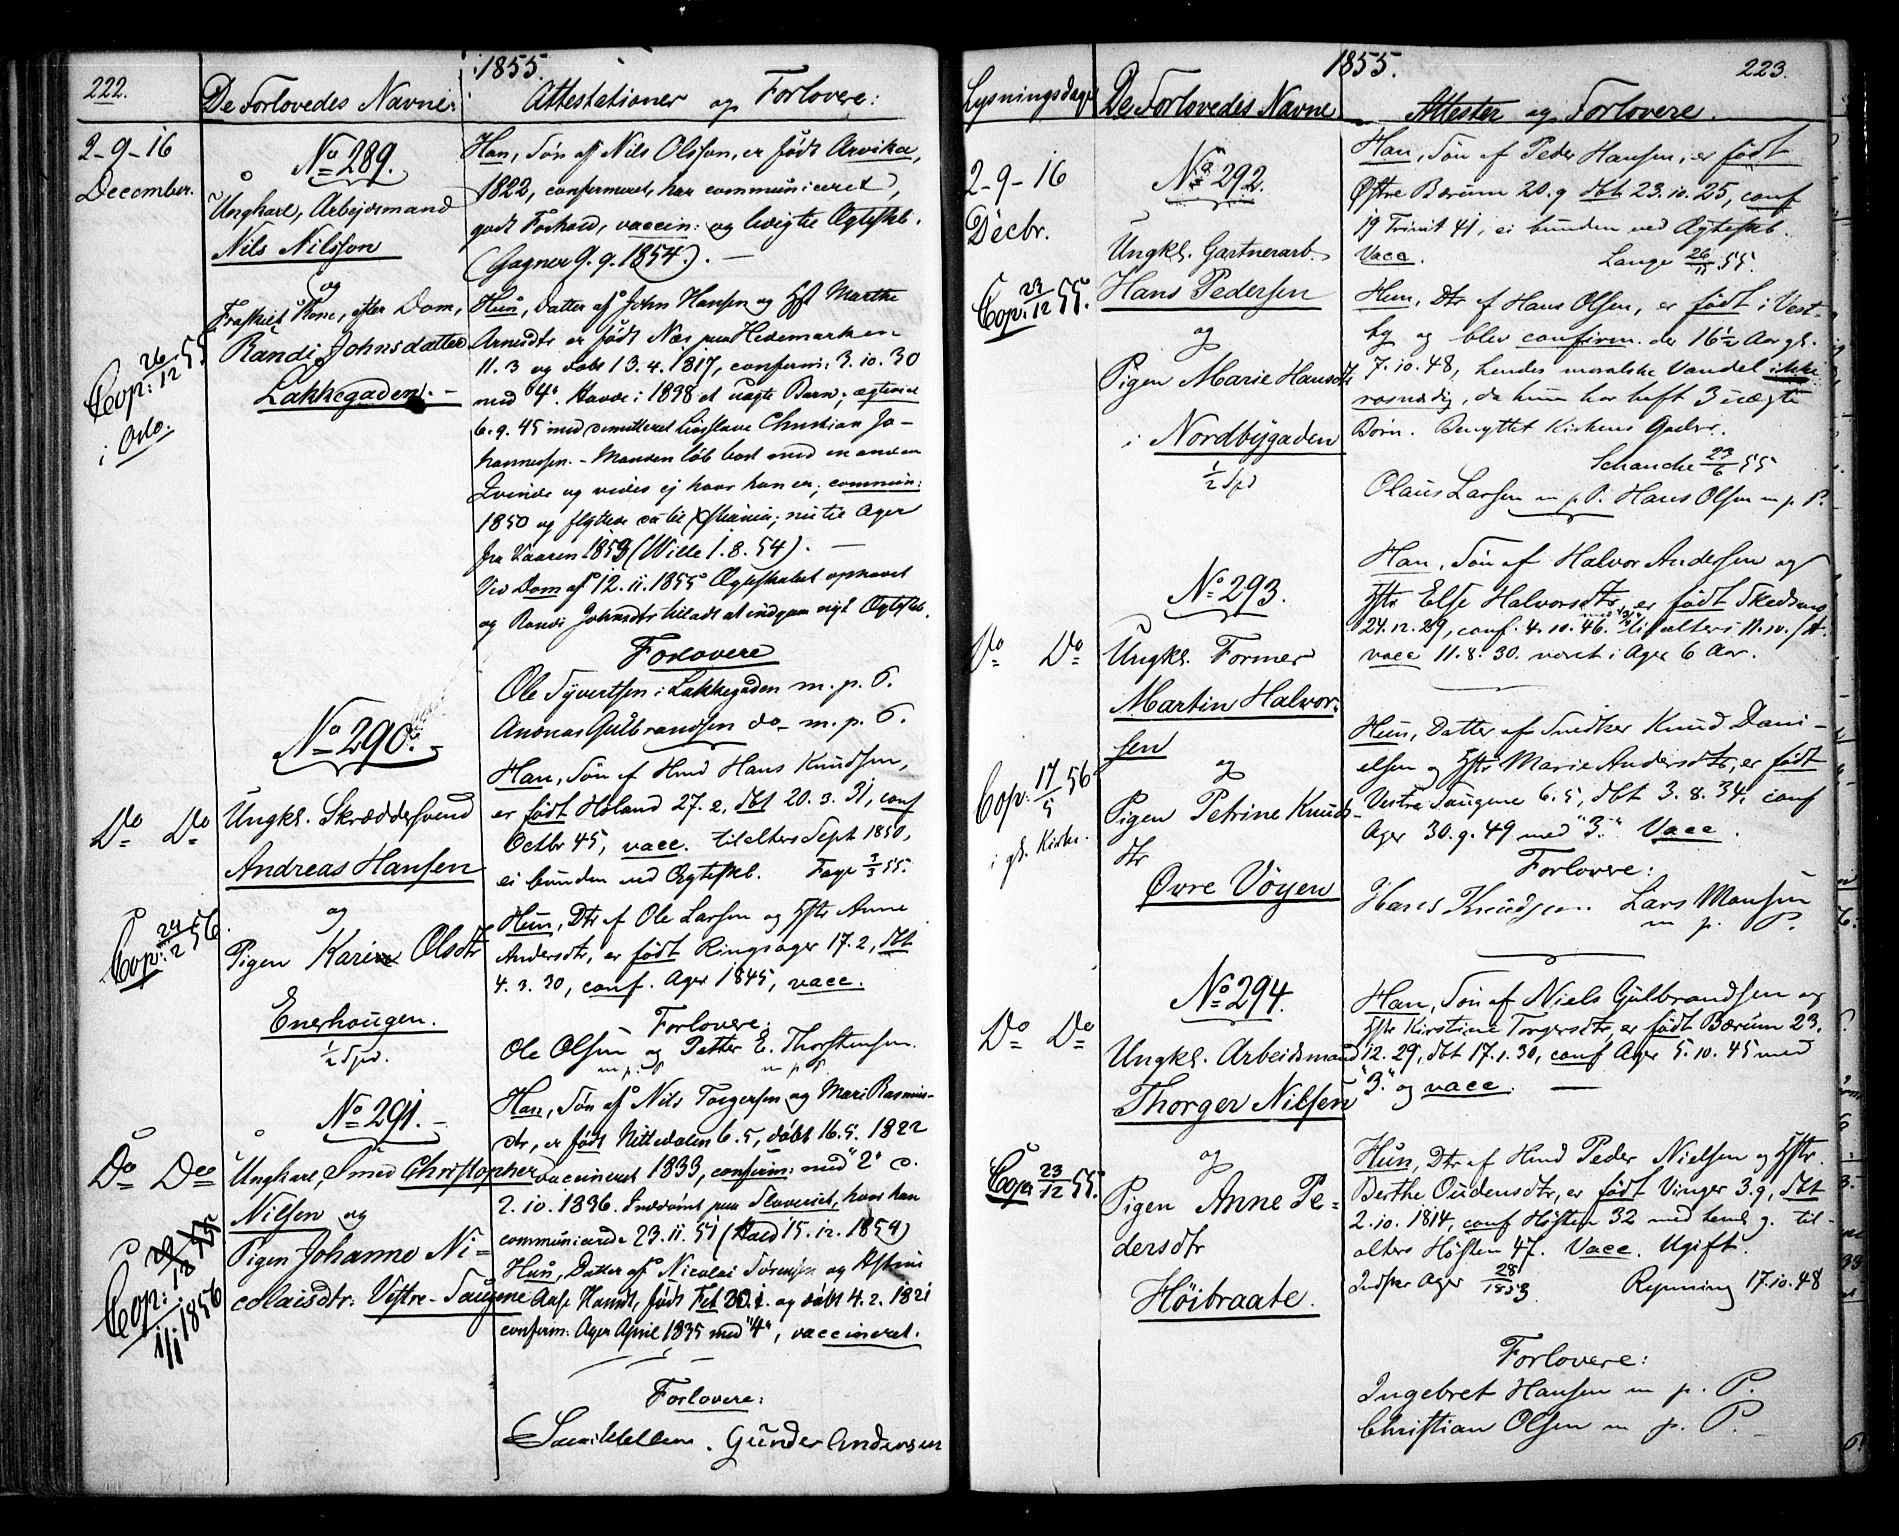 222.
1855.
De Forlovedes Navne:
Attestationer og Forlovere:
2-9-16
December.
No 289.
Ungkarl, Arbejdsmand
Nils Nilsson
og
Fraskilt Kone, efter Dom,
Randi Johnsdatter
Lakkegaden. -
Cop: 26/12 55
i Oslo.
Han, Søn af Nils Olsson, er født Arvika,
1822, confirmeret, har communiceret,
godt Forhold, vaccin: og ledigt Ægteskb.
(Gagner 9.9.1854.). -
Hun, Datter af John Hansen og Hst Marthe
Arnesdtr er født Næs paa Hedemarken
11.3 og døbt 13.4.1817, confirm: 3.10.30
med "4". Havde i 1838 et uægte Barn; ægtevied
6.9.45 med dimitteret Livsslave Christian Jo-
hannessen. - Manden løb bort med en anden
Qvinde og vides ej hvor han er; commun:
1850 og flyttede da til Xstiania; nu til Ager
fra Vaaren 1853 (Wille 1.8.54). -
Ved Dom af 12.11.1855 Ægteskabet ophævet
og Randi Johnsdtr tilladt at indgaa nyt Ægteskb.
Forlovere
Ole Syvertsen i Lakkegaden m.p.P.
Andreas Gulbrandsen do m.p.P.
No 290. -
Do Do
Ungkl. Skræddersvend
Andreas Hansen
og
Pigen Karin Olsdtr
Enerhougen.
1/2 Spd.
Cop: 24/2 56.
Han, Søn af Hmd Hans Knudsen,
er født Høland 27.2, dbt 20.3.31, conf
Octbr 45, vacc. tilalters Sept 1850,
ei bunden ved Ægteskb. Faye 3/3 55.
Hun, Dtr af Ole Larsen og Hstr Anne
Andersdtr, er født Ringsager 17.2, dbt
4.3.30, conf. Ager 1845, vacc.
Forlovere:
Ole Olsen og Petter E. Thorstensen.
m.p.P. m.p.P.
No 291. -
Do Do
Ungkarl, Smed Christopher
Nilsen og
Pigen Johanne Ni-
colaisdtr: Vestre-Saugene
Cop: 29/12 55
1/1 1856
Han, Søn af Nils Torgersen og Mari Rasmus-
dtr, er født Nittedalen 6.5, døbt 16.5.1822
vaccineret 1833, confirm: med "2" d.
2.10.1836. Inddømt paa Slaveriet, hvor han
communicerede 23.11.51 (Hald 15.12.1854)
Hun, Datter af Nicolai Sørensen og
født Feb 20.1. og døbt 4.2.1821
confirm: Ager April 1835 med "4", vaccineret.
Forlovere:
Gunder Andersen
1855.
223.
Lysningsdage
De Forlovedes Navne
Attester og Forlovere.
2-9-16
Decbr.
No 292.
Ungkl. Gartnerarb.
Hans Pedersen
og
Pigen Marie Hansdtr
i Nordbygaden
1/2 Spd
Cop: 23/12 55.
Han, Søn af Peder Hansen, er født
Østre Bærum 20.9 dbt 23.10.25, conf
19 Trinit 41, ei bunden ved Ægteskb.
Vacc. Lange 26/11 55.
Hun, Dtr af Hans Olsen, er født i Vest-
by og blev confirm. der 16½ Aar gl.
7.10.48, hendes moralske Vandel ikke
rosværdig, da hun har haft 3 uægte
Børn. Benyttet Kirkens Goder.
Schanche 23/6 55
Olaus Larsen m.p.P. Hans Olsen m.p.P.
No 293.
Do Do
Ungkl. Former
Martin Halvor-
sen
og
Pigen Petrine Knuds-
dtr
Øvre Vöyen
Cop: 17/5 56
i gl. Kirke.
Han, Søn af Halvor Andersen og
Hstr Else Halvorsdtr, er født Skedsmo
24.12.29, conf. 4.10.46. tilalters
vacc 11.8.30. været i Ager 6 Aar.
Hun, Datter af Snedker Knud Dani-
elsen og Hstr Marie Andersdtr, er født
Vestre Saugene 6.5, dbt 3.8.34. conf
Ager 30.9.49 med "3." Vacc.
Forlovere:
Hans Knudsen. Lars Monsen
m.p.P.
No 294.
Do Do
Ungkl. Arbeidsmand
Thorger Nilsen
og
Pigen Anne Pe-
dersdtr
Höibraate.
Cop: 23/12 55.
Han, Søn af Niels Gulbrandsen og
Hstr Kirstine Torgersdtr, er født Bærum 23.
12.29, dbt 17.1.30, conf Ager 5.10.45 med
"3." og vacc. -
Hun, Dtr af Hmd Peder Nielsen og Hstr.
Berthe Oudensdtr, er født Vinger 3.9, dbt
2.10.1814, conf Høsten 32 med
til-
alters Høsten 47. Vacc. Ugift.
Indskr Ager 28/1 1853. 17.10.48
Forlovere:
Ingebret Hansen m.p.P.
Christian Olsen m.p.P.